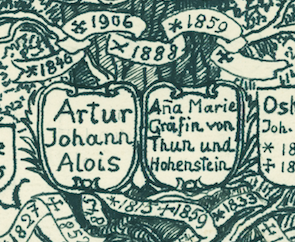 *1906
*1859
⚔1888
*1846
Artur
Johann
Alois
Aña Marie
Gräfin von
Thun und
Hohenstein
Joh.
*18
‡18
*1813
‡1859
*1833
1827